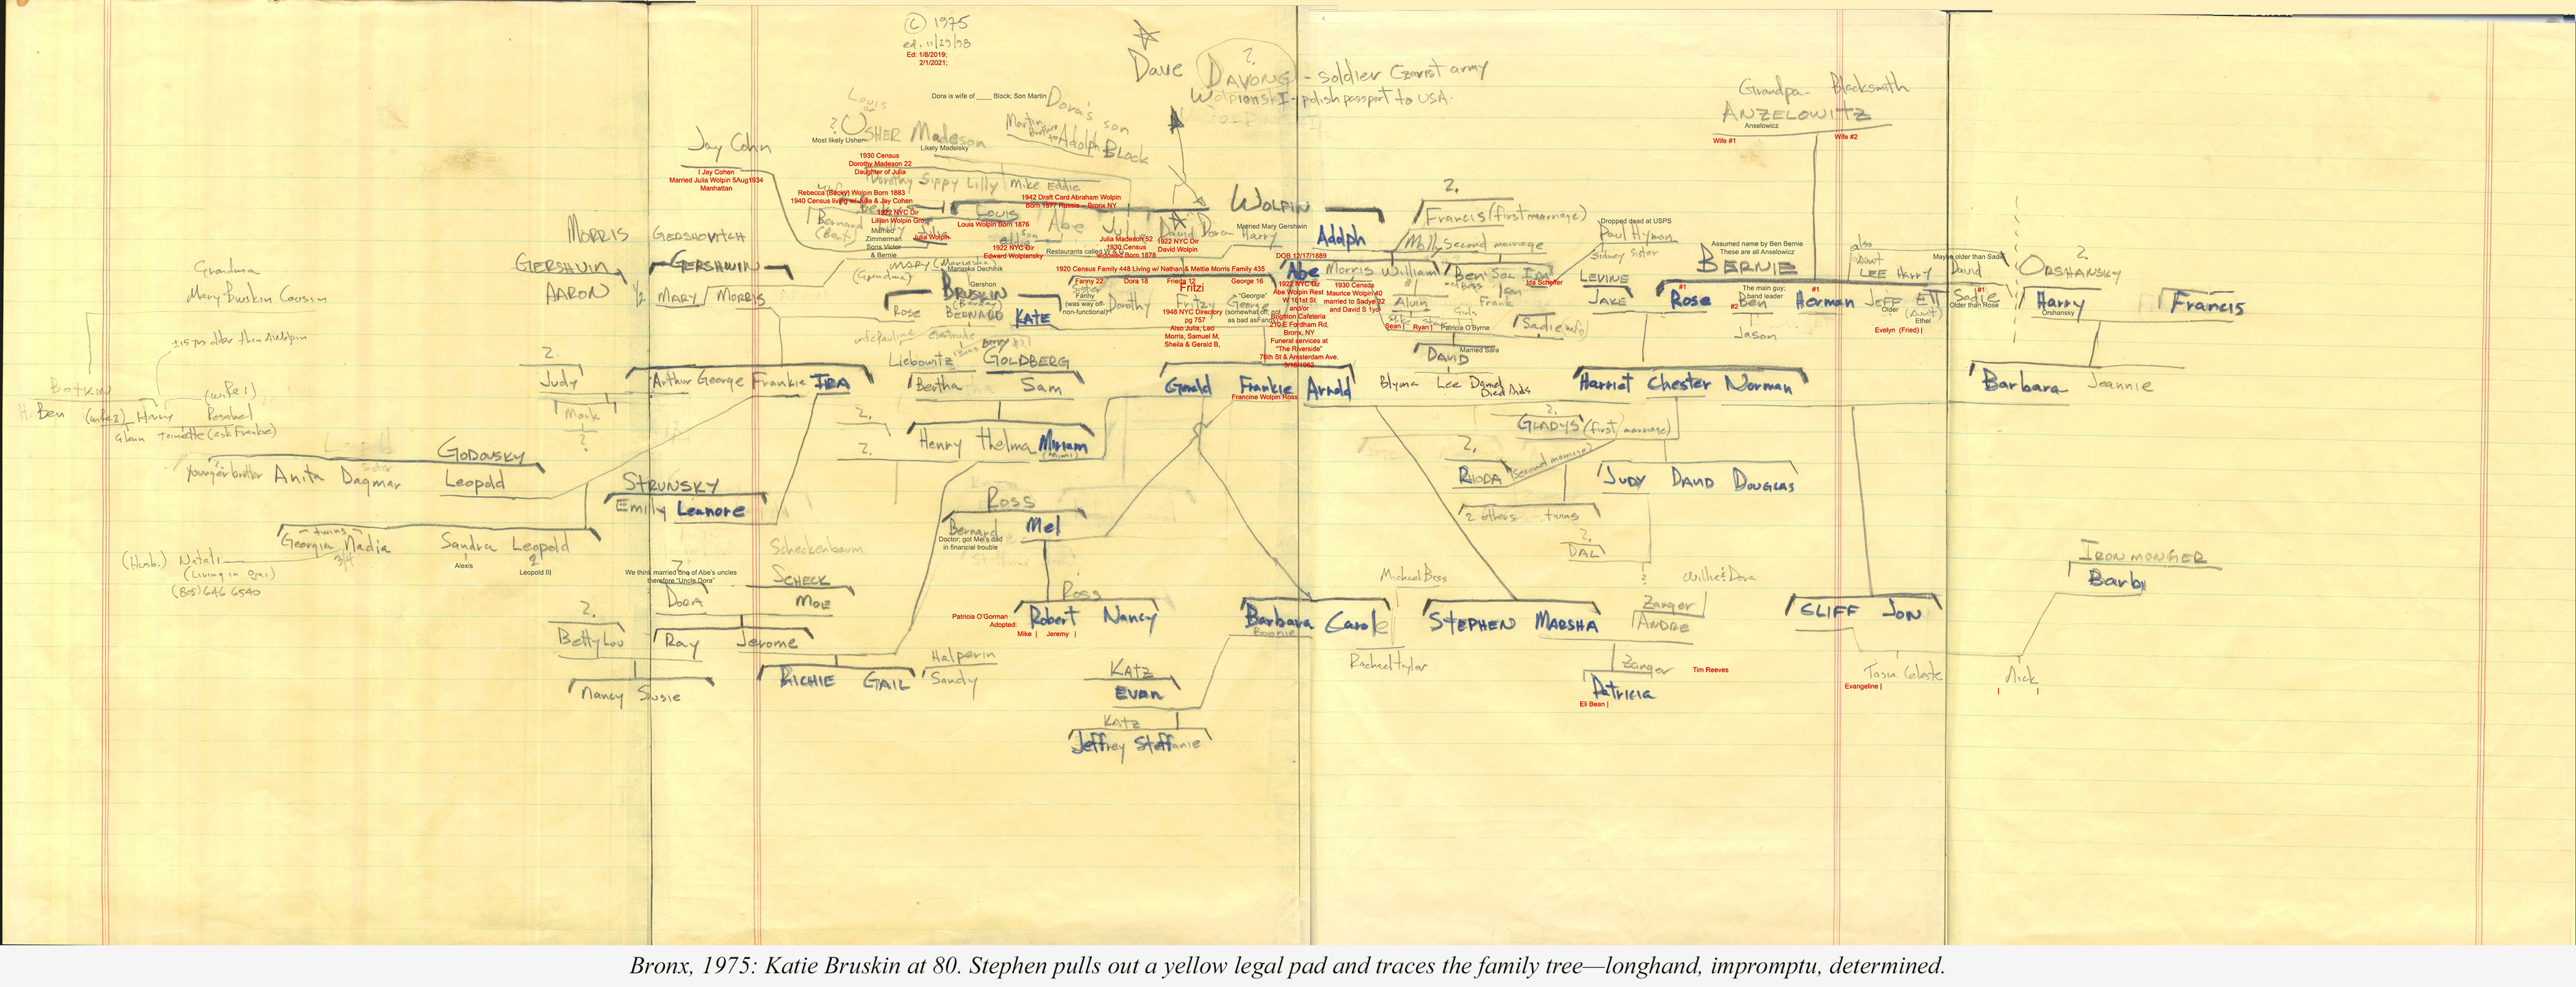 © 1975
ed. 11/29/98
Ed: 1/8/2019;
2/1/2021;
Dave
?
DAVONG - soldier Czarist army
Wolpionski - polish passport to USA
Grandpa - Blacksmith
ANZELOWITZ
Anselowicz
Wife #1
Wife #2
Dora is wife of ____ Block; Son Martin
Dora's son
Louis
or
? USHER Madeson
Most likely Ushen
Likely Madeisky
Martin
brother
to Adolph BLOCK
Jay Cohn
I Jay Cohen
Married Julia Wolpin 5Aug1934
Manhattan
1930 Census
Dorothy Madeson 22
Daughter of Julia
Dorothy Sippy Lilly Mike Eddie
Rebecca (Becky) Wolpin Born 1883
1940 Census living w/ Julia & Jay Cohen
1942 Draft Card Abraham Wolpin
Born 1877 Russia – Bronx NY
WOLPIN
Bernard
(Best)
1922 NYC Dir
Lillian Wolpin Gro
Louis
Louis Wolpin Born 1876
Abe
David Dora Harry
Married Mary Gershwin
Adolph
Julia Wolpin
Married
Zimmerman
Sons Victor
& Bernie
son
eddie
1922 NYC Dir
Edward Wolpiansky
Restaurants called W
Julia Madeson 52
1930 Census
widowed Born 1878
1922 NYC Dir
David Wolpin
?
Francis (first marriage)
Molly second marriage
Dropped dead at USPS
Paul Hyman
Sidney Sister
MORRIS GERSHOVITCH
GERSHWIN
AARON
1/2
GERSHWIN
MARY MORRIS
MARY (Mariaska)
(Grandma)
Mariaska Dechinik
Gershon
BRUSKIN
ROSE
(Barney)
BERNARD
KATE
1920 Census Family 448 Living w/ Nathan & Mettie Morris Family 435
Fanny 22
Dora 18
Frieda 12
George 16
Sister
Fanhy
(was way off-
non-functional)
Dorothy
Fritzi
Fritzy
George
"Georgie"
(somewhat off; not
as bad as Fanny)
1948 NYC Directory
pg 757
Also Julia, Leo
Morris, Samuel M,
Sheila & Gerald B,
DOB 12/17/1889
Abe Morris William
1922 NYC Dir
Abe Wolpin Rest
W 161st St
and/or
Brighton Cafeteria
210 E Fordham Rd,
Bronx, NY
Funeral services at
"The Riverside"
76th St & Amsterdam Ave.
1930 Census
Maurice Wolpin 40
married to Sadye 32
and David S 1yo
Ben Sol
Ida Scheffer
Alvin
Frank
Sean | Ryan |
Girls
Patricia O'Byrne
Sadie (wife)
DAVID
Married Sara
Blyma Lee Daniel
Died Aids
LEVINE
JAKE
Assumed name by Ben Bernie
These are all Anselowicz
BERNIE
#1
Rose
#2
Ben
The main guy;
band leader
#1
Herman
Jason
also
about
LEE Harry
JEFF
Older
ETT
(Aunt)
Ethel
Evelyn (Fried) |
Maybe older than Sadie
David
#1
Sadie
Older than Rose
?
ORSHANSKY
Harry
Orshansky
Francis
Barbara Jeannie
Grandma
Mary Bruskin Cousin
1.5 yrs older then A Wolpin
BOTKIN
Ben (wife 2) Harry
(wife 1)
Rosabel
Glenn Toinette (ask Frankie)
?
Judy
Mark
?
Arthur George Frankie IRA
wife Pauline
Gertrude
Liebowitz
GOLDBERG
Bertha Sam
?
?
Henry Thelma Miriam
(mimi)
Gerald Frankie Arnold
Francine Wolpin Ross
Harriet Chester Norman
?
GLADYS (first marriage)
?
RHODA (second marriage)
JUDY DAVID DOUGLAS
2 others twins
?
DAL
GODOWSKY
younger brother Anita Dagmar
sister
Leopold
STRUNSKY
Emily Leanore
- twins -
Georgia Nadia
3/4
Sandra Leopold
Alexis
2
Leopold III
(Husb.) Natali
(Living in Ojai)
(805) 646 6540
ROSS
Bernard Mel
Doctor; got Mel's dad
in financial trouble
Scheckenbaum
We think married one of Abe's uncles
therefore "Uncle Dora"
?
DORA
SCHECK
MOE
?
Betty Lou
Ray Jerome
Nancy Susie
RICHIE GAIL
Halperin
Sandy
Patricia O'Gorman
Adopted:
Mike | Jeremy |
Ross
Robert Nancy
Barbara Carole
Bonnie
Michael Bess
Rachael Taylor
KATZ
EVAN
KATZ
Jeffrey Steffanie
STEPHEN MARSHA
?
Willie & Dora
Zanger
ANDRE
Zanger
Patricia
Tim Reeves
Eli Bean |
CLIFF JON
IRONMONGER
Barb
Tasia Celeste
Evangeline |
Nick
Bronx, 1975: Katie Bruskin at 80. Stephen pulls out a yellow legal pad and traces the family tree—longhand, impromptu, determined.